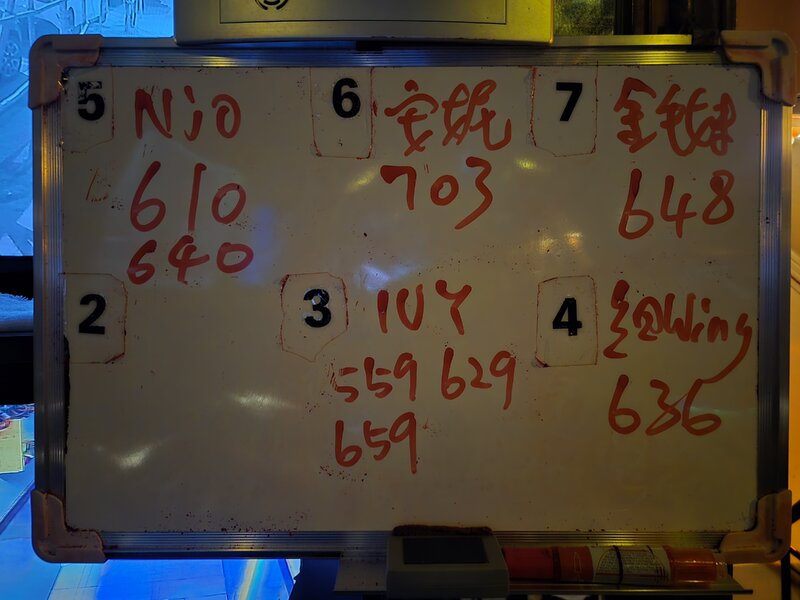 5 Nio
610
640
6 安妮
703
7
648
2
3 IVY
559 629
659
4 Wing
636